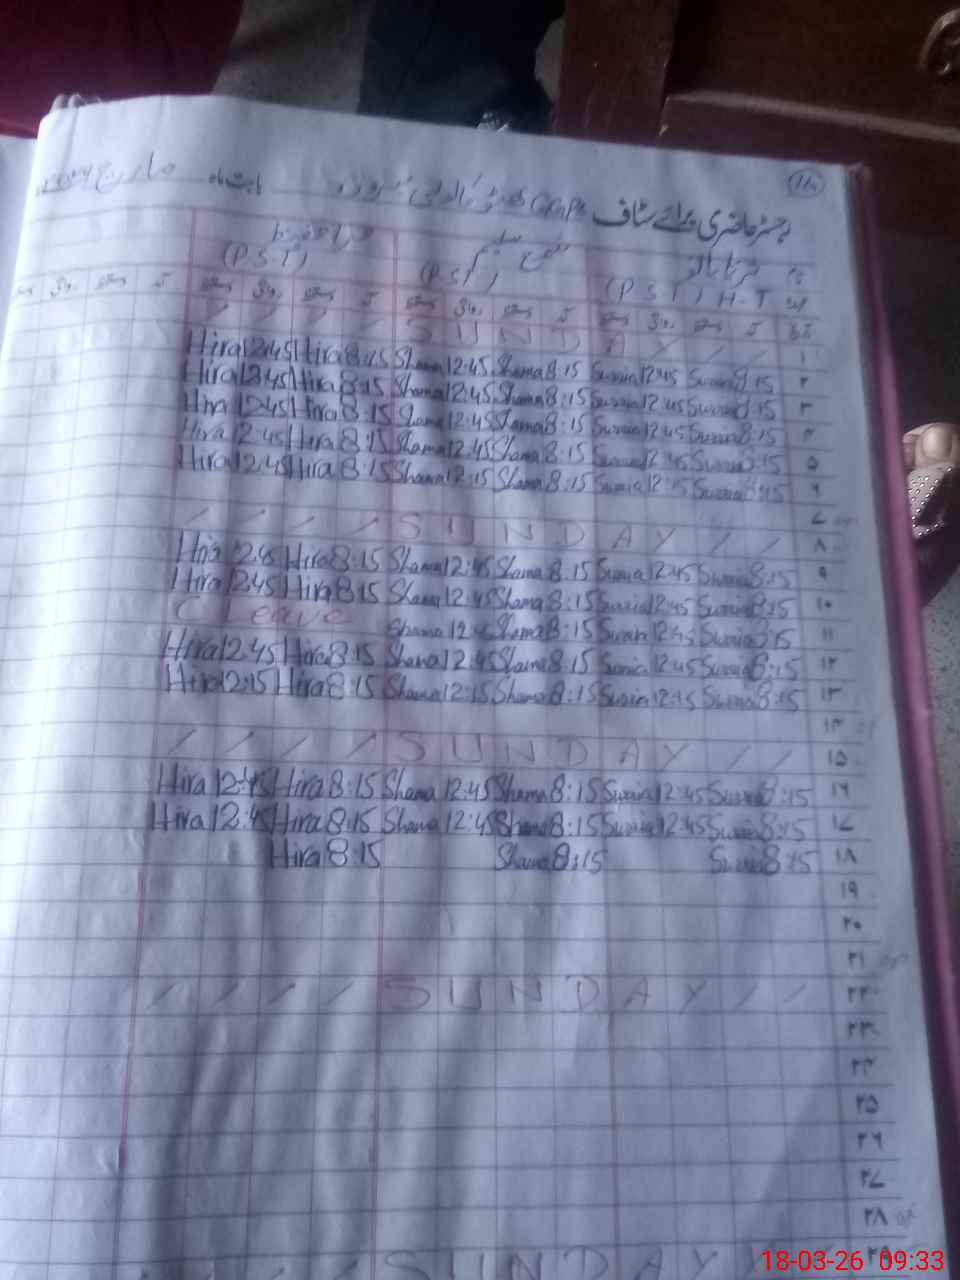 رجسٹر حاضری برائے سٹاف GGPS
بابت ماہ مارچ
(PST) H-T
(PST)
(PST)
۱ SUNDAY
۲ Suraia 8:15 Suraia 12:45 Shama 8:15 Shama 12:45 Hira 8:15 Hira 12:45
۳ Suraia 8:15 Suraia 12:45 Shama 8:15 Shama 12:45 Hira 8:15 Hira 12:45
۴ Suraia 8:15 Suraia 12:45 Shama 8:15 Shama 12:45 Hira 8:15 Hira 12:45
۵ Suraia 8:15 Suraia 12:45 Shama 8:15 Shama 12:45 Hira 8:15 Hira 12:45
۶ Suraia 8:15 Suraia 12:15 Shama 8:15 Shama 12:15 Hira 8:15 Hira 12:45
۷
۸ SUNDAY
۹ Suraia 8:15 Suraia 12:45 Shama 8:15 Shama 12:45 Hira 8:15 Hira 12:45
۱۰ Suraia 8:15 Suraia 12:45 Shama 8:15 Shama 12:45 Hira 8:15 Hira 12:45
۱۱ Suraia 8:15 Suraia 12:45 Shama 8:15 Shama 12:45 C Leave
۱۲ Suraia 8:15 Suraia 12:45 Shama 8:15 Shama 12:45 Hira 8:15 Hira 12:45
۱۳ Suraia 8:15 Suraia 12:15 Shama 8:15 Shama 12:15 Hira 8:15 Hira 12:15
۱۴
۱۵ SUNDAY
۱۶ Suraia 8:15 Suraia 12:45 Shama 8:15 Shama 12:45 Hira 8:15 Hira 12:45
۱۷ Suraia 8:15 Suraia 12:45 Shama 8:15 Shama 12:45 Hira 8:15 Hira 12:45
۱۸ Suraia 8:15 Shama 8:15 Hira 8:15
۱۹
۲۰
۲۱
۲۲ SUNDAY
۲۳
۲۴
۲۵
۲۶
۲۷
۲۸
۲۹ SUNDAY
18-03-26 09:33